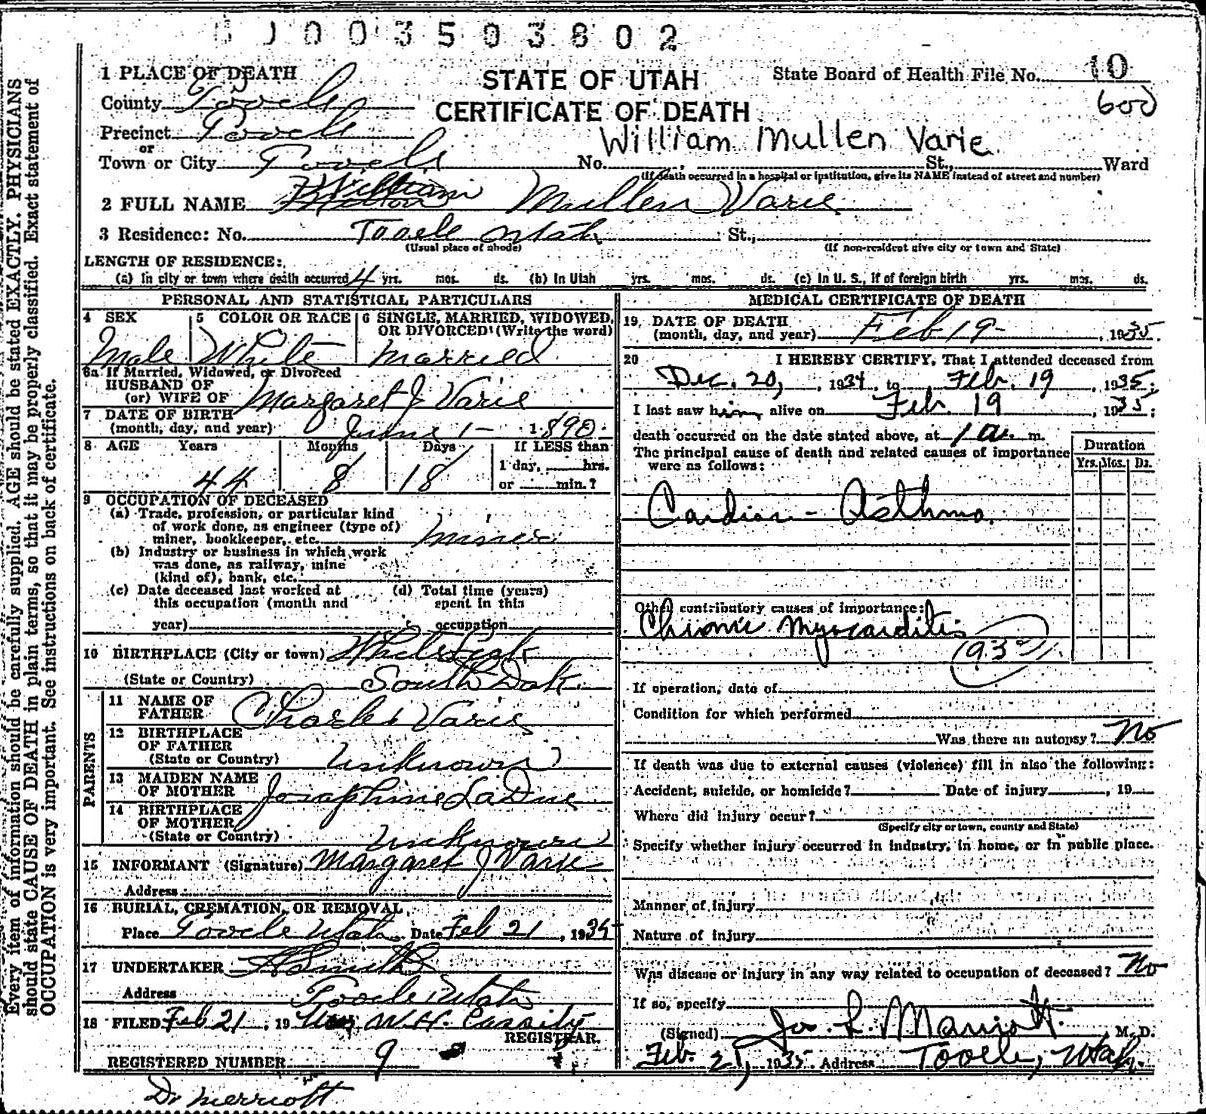 003503802
STATE OF UTAH
CERTIFICATE OF DEATH
State Board of Health File No. 10
600
1 PLACE OF DEATH
County Tooele
Precinct Tooele
or
Town or City Tooele No. St., Ward
William Mullen Varie
(If death occurred in a hospital or institution, give its NAME instead of street and number)
2 FULL NAME William Mullen Varie
3 Residence: No. Tooele Utah St.,
(Usual place of abode) (If non-resident give city or town and State)
LENGTH OF RESIDENCE:
(a) In city or town where death occurred 4 yrs. mos. ds. (b) In Utah yrs. mos. ds. (c) In U. S., if of foreign birth yrs. mos. ds.
PERSONAL AND STATISTICAL PARTICULARS
4 SEX 5 COLOR OR RACE 6 SINGLE, MARRIED, WIDOWED,
OR DIVORCED (Write the word)
Male White Married
6a If Married, Widowed, or Divorced
HUSBAND OF
(or) WIFE OF Margaret J Varie
7 DATE OF BIRTH
(month, day, and year) June 1- 1890.
8 AGE Years Months Days If LESS than
44 8 18 1 day, hrs.
or min.?
9 OCCUPATION OF DECEASED
(a) Trade, profession, or particular kind
of work done, as engineer (type of)
miner, bookkeeper, etc. miner
(b) Industry or business in which work
was done, as railway, mine
(kind of), bank, etc.
(c) Date deceased last worked at (d) Total time (years)
this occupation (month and spent in this
year) occupation
10 BIRTHPLACE (City or town)
(State or Country) South Dak.
PARENTS
11 NAME OF
FATHER Charles Varie
12 BIRTHPLACE
OF FATHER
(State or Country) Unknown
13 MAIDEN NAME
OF MOTHER Josephine LaDue
14 BIRTHPLACE
OF MOTHER
(State or Country) Unknown
15 INFORMANT (Signature) Margaret J Varie
Address
16 BURIAL, CREMATION, OR REMOVAL
Place Tooele Utah Date Feb 21, 1935
17 UNDERTAKER Smith
Address Tooele Utah
18 FILED Feb 21, 19 W.H. Cassity
REGISTRAR.
REGISTERED NUMBER 9
Dr Merriott
MEDICAL CERTIFICATE OF DEATH
19. DATE OF DEATH
(month, day, and year) Feb 19- , 1935.
20 I HEREBY CERTIFY, That I attended deceased from
Dec. 20, 1934, to Feb. 19, 1935;
I last saw him alive on Feb. 19, 1935;
death occurred on the date stated above, at 1 a. m.
The principal cause of death and related causes of importance
were as follows:
Duration
Yrs. Mos. Ds.
Cardiac - Asthma.
Other contributory causes of importance:
Chronic Myocarditis
If operation, date of
Condition for which performed
Was there an autopsy? No
If death was due to external causes (violence) fill in also the following:
Accident, suicide, or homicide? Date of injury , 19
Where did injury occur?
(Specify city or town, county and State)
Specify whether injury occurred in industry, in home, or in public place.
Manner of injury
Nature of injury
Was disease or injury in any way related to occupation of deceased? No
If so, specify
(Signed) Jos. L. Marriott. M. D.
Feb. 21, 1935 Address Tooele, Utah.
Every item of information should be carefully supplied. AGE should be stated EXACTLY. PHYSICIANS
should state CAUSE OF DEATH in plain terms, so that it may be properly classified. Exact statement of
OCCUPATION is very important. See instructions on back of certificate.